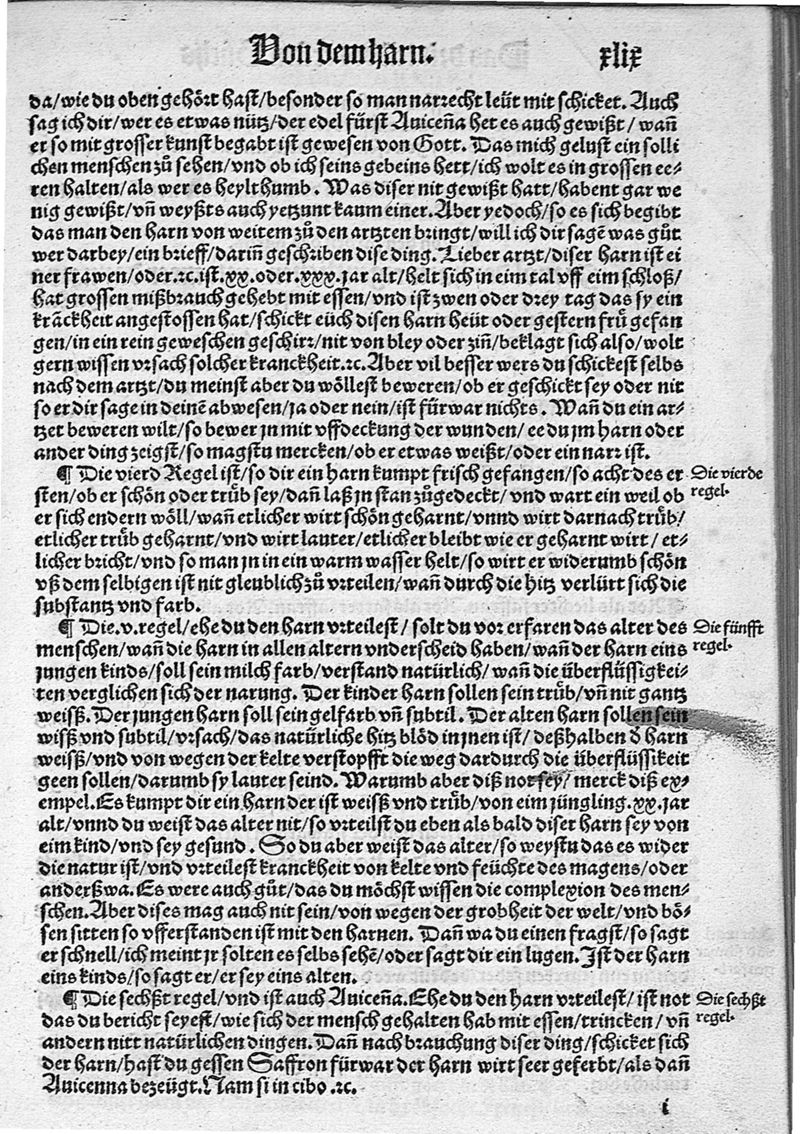 Von dem harn. xlix
da/wie du oben gehört hast/besonder so man narrecht leüt mit schicket. Auch
sag ich dir/wer es etwas nütz/der edel fürst Auiceña het es auch gewißt/wañ
er so mit grosser kunst begabt ist gewesen von Gott. Das mich gelust ein solli
chen menschen zů sehen/vnd ob ich seins gebeins hett/ich wolt es in grossen ee⸗
ren halten/als wer es heylthumb. Was diser nit gewißt hatt/habent gar we
nig gewißt/vñ weyßts auch yetzunt kaum einer. Aber yedoch/so es sich begibt
das man den harn von weitem zů den artzten bringt/will ich dir sagē was gůt
wer darbey/ein brieff/dariñ geschriben dise ding. Lieber artzt/diser harn ist ei
ner frawen/oder.ꝛc.ist.xx.oder.xxx.jar alt/helt sich in eim tal vff eim schloß/
hat grossen mißbrauch gehebt mit essen/vnd ist zwen oder drey tag das sy ein
krāckheit angestossen hat/schickt eüch disen harn heüt oder gestern frů gefan
gen/in ein rein geweschen geschirr/nit von bley oder ziñ/beklagt sich also/wolt
gern wissen vrsach solcher kranckheit.ꝛc. Aber vil besser wers du schickest selbs
nach dem artzt/du meinst aber du wöllest beweren/ob er geschickt sey oder nit
so er dir sage in deinē abwesen/ja oder nein/ist fürwar nichts. Wañ du ein ar⸗
tzet beweren wilt/so bewer jn mit vffdeckung der wunden/ee du jm harn oder
ander ding zeigst/so magstu mercken/ob er etwas weißt/oder ein narr ist.
¶ Die vierd Regel ist/so dir ein harn kumpt frisch gefangen/so acht des er
sten/ob er schön oder trůb sey/dañ laß jn stan zůgedeckt/vnd wart ein weil ob
er sich endern wöll/wañ etlicher wirt schön geharnt/vnnd wirt darnach trüb/
etlicher trüb geharnt/vnd wirt lauter/etlicher bleibt wie er geharnt wirt/et⸗
licher bricht/vnd so man jn in ein warm wasser helt/so wirt er widerumb schön
vß dem selbigen ist nit gleublich zů vrteilen/wañ durch die hitz verlürt sich die
substantz vnd farb.
Die vierde
regel.
¶ Die.v.regel/ehe du den harn vrteilest/solt du vor erfaren das alter des
menschen/wañ die harn in allen altern vnderscheid haben/wañ der harn eins
jungen kinds/soll sein milch farb/verstand natürlich/wañ die überflüssigkei⸗
ten verglichen sich der narung. Der kinder harn sollen sein trüb/vñ nit gantz
weiß. Der jungen harn soll sein gelfarb vñ subtil. Der alten harn sollen sein
wiß vnd subtil/vrsach/das natürliche hitz blöd in jnen ist/deßhalben ð harn
weiß/vnd von wegen der kelte verstopfft die weg dardurch die überflüssikeit
geen sollen/darumb sy lauter seind. Warumb aber diß not sey/merck diß ex⸗
empel. Es kumpt dir ein harn der ist weiß vnd trüb/von eim jüngling.xx.jar
alt/vnnd du weist das alter nit/so vrteilst du eben als bald diser harn sey von
eim kind/vnd sey gesund. So du aber weist das alter/so weystu das es wider
die natur ist/vnd vrteilest kranckheit von kelte vnd feüchte des magens/oder
anderßwa. Es were auch gůt/das du möchst wissen die complexion des men⸗
schen. Aber dises mag auch nit sein/von wegen der grobheit der welt/vnd bö⸗
sen sitten so vfferstanden ist mit den harnen. Dañ wa du einen fragst/so sagt
er schnell/ich meint jr solten es selbs sehē/oder sagt dir ein lugen. Ist der harn
eins kinds/so sagt er/er sey eins alten.
Die fünfft
regel.
¶ Die sechßt regel/vnd ist auch Auiceña. Ehe du den harn vrteilest/ist not
das du bericht seyest/wie sich der mensch gehalten hab mit essen/trincken/vñ
andern nitt natürlichen dingen. Dañ nach brauchung diser ding/schicket sich
der harn/hast du gessen Saffron fürwar der harn wirt seer geferbt/als dañ
Auicenna bezeügt. Nam si in cibo .ꝛc.
Die sechßt
regel.
i